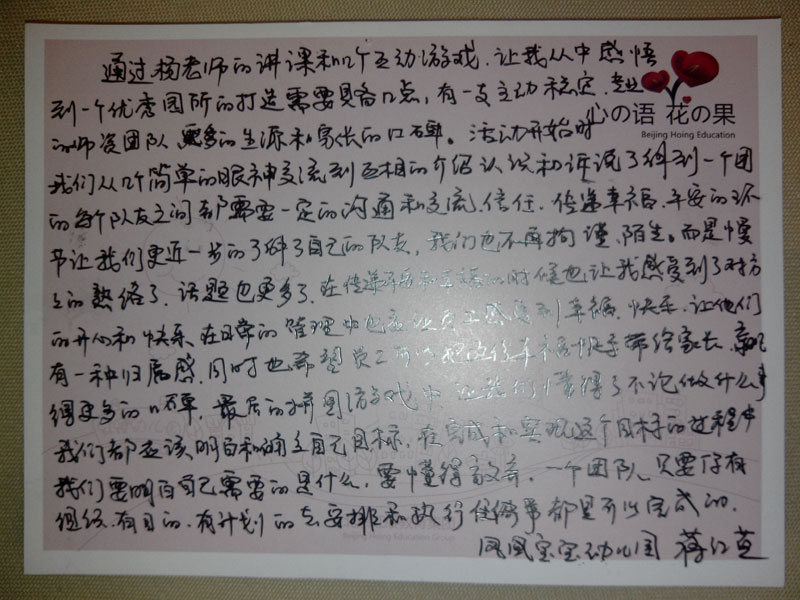 通过杨老师的讲课和几个互动游戏.让我从中感悟
到一个优秀园所的打造需要具备几点,有一支主动稳定.专业
的师资团队 更多的生源和家长的口碑。活动开始时
心の语 花の果
Beijing Hoing Education
我们从几个简单的眼神交流到互相的介绍认识和诉说了解到一个团
的每个队友之间都需要一定的沟通和交流.信任.传递幸福.平安的环
节让我们更近一步的了解了自己的队友,我们也不再拘谨、陌生。而是慢
的熟络了.话题也更多了.在传递平安和幸福的时候也让我感受到了对方
的开心和快乐.在日常的管理中也应让员工感受到幸福.快乐.让他们
有一种归属感.同时也希望员工可以把这份幸福快乐带给家长.赢
得更多的口碑.最后的拼图游戏中让我们懂得了不论做什么事
我们都应该明白和确立自己目标.在完成和实现这个目标的过程中
我们要明白自己需要的是什么,要懂得.一个团队.只要
组织.有目的.有计划的去安排和执行任何事都是可以完成的.
Beijing Hoing Education Group
凤凰宝宝幼儿园 蒋红芝